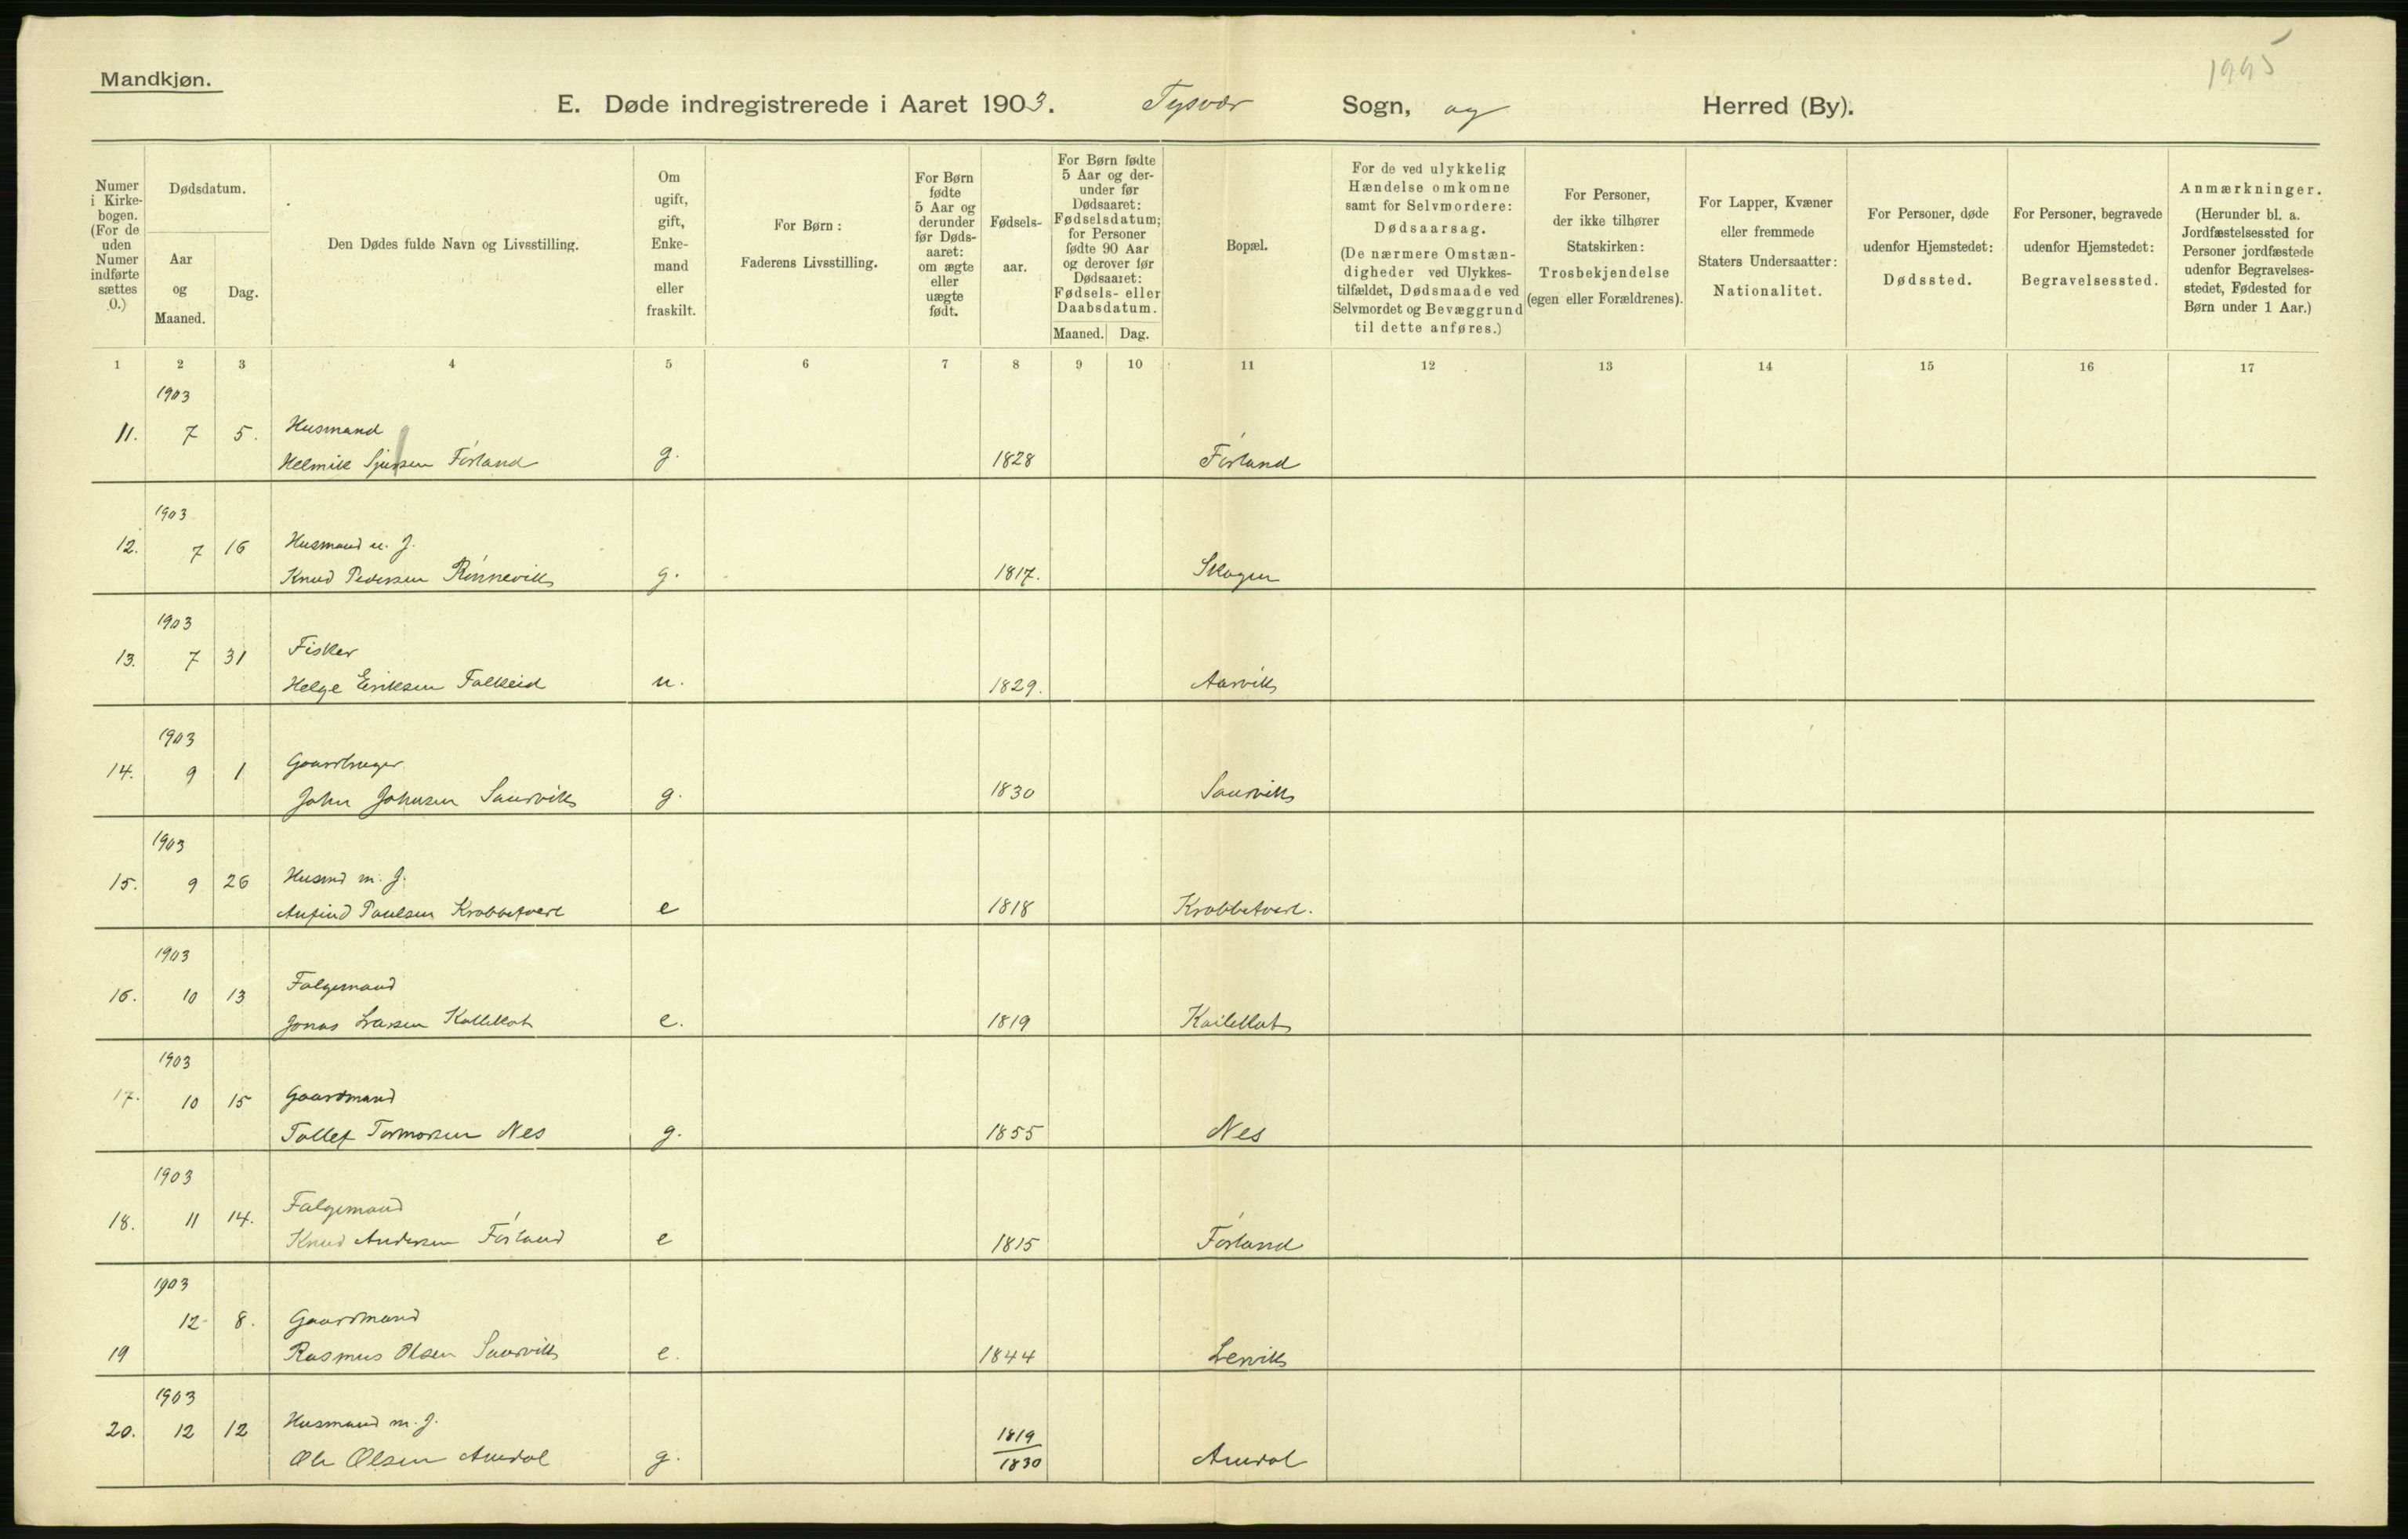 1995
Mandkjøn.
E. Døde indregistrerede i Aaret 1903. Tysvær Sogn, og Herred (By).
Numer i Kirke-bogen. (For de uden Numer indførte sættes 0.)
Dødsdatum.
Aar og Maaned.
Dag.
Den Dødes fulde Navn og Livsstilling.
Om ugift, gift, Enke-mand eller fraskilt.
For Børn: Faderens Livsstilling.
For Børn fødte 5 Aar og derunder før Døds-aaret: om ægte eller uægte født.
Fødsels-aar.
For Børn fødte 5 Aar og der-under før Dødsaaret: Fødselsdatum; for Personer fødte 90 Aar og derover før Dødsaaret: Fødsels- eller Daabsdatum.
Maaned. Dag.
Bopæl.
For de ved ulykkelig Hændelse omkomne samt for Selvmordere: Dødsaarsag. (De nærmere Omstæn-digheder ved Ulykkes-tilfældet, Dødsmaade ved Selvmordet og Bevæggrund til dette anføres.)
For Personer, der ikke tilhører Statskirken: Trosbekjendelse (egen eller Forældrenes).
For Lapper, Kvæner eller fremmede Staters Undersaatter: Nationalitet.
For Personer, døde udenfor Hjemstedet: Dødssted.
For Personer, begravede udenfor Hjemstedet: Begravelsessted.
Anmærkninger. (Herunder bl. a. Jordfæstelsessted for Personer jordfæstede udenfor Begravelses-stedet, Fødested for Børn under 1 Aar.)
1 2 3 4 5 6 7 8 9 10 11 12 13 14 15 16 17
1903
11. 7 5. Husmand
Helmik Sjursen Førland g. 1828 Førland
1903
12. 7 16 Husmand u. J.
Knud Pedersen Rønnevik g. 1817. Skogen
1903
13. 7 31 Fisker
Helge Eriksen Falkeid u. 1829. Aarvik
1903
14. 9 1 Gaardbruger
John Johnsen Saurvik g. 1830 Saurvik
1903
15. 9 26 Husmd m. J.
Anfind Paulsen Krabbetveit e 1818 Krabbetveit.
1903
16. 10 13 Folgemand
Jonas Larsen e. 1819
1903
17. 10 15 Gaardmand
Tollef Tormodsen Nes g. 1855 Nes
1903
18. 11 14. Folgemand
Knud Andersen Førland e 1815 Førland
1903
12 8. Gaardmand
19 Rasmus Olsen Saurvik e. 1844 Lervik
1903
20. 12 12 Husmand m. J. 1819
Ole Olsen Amdal g. 1830 Amdal